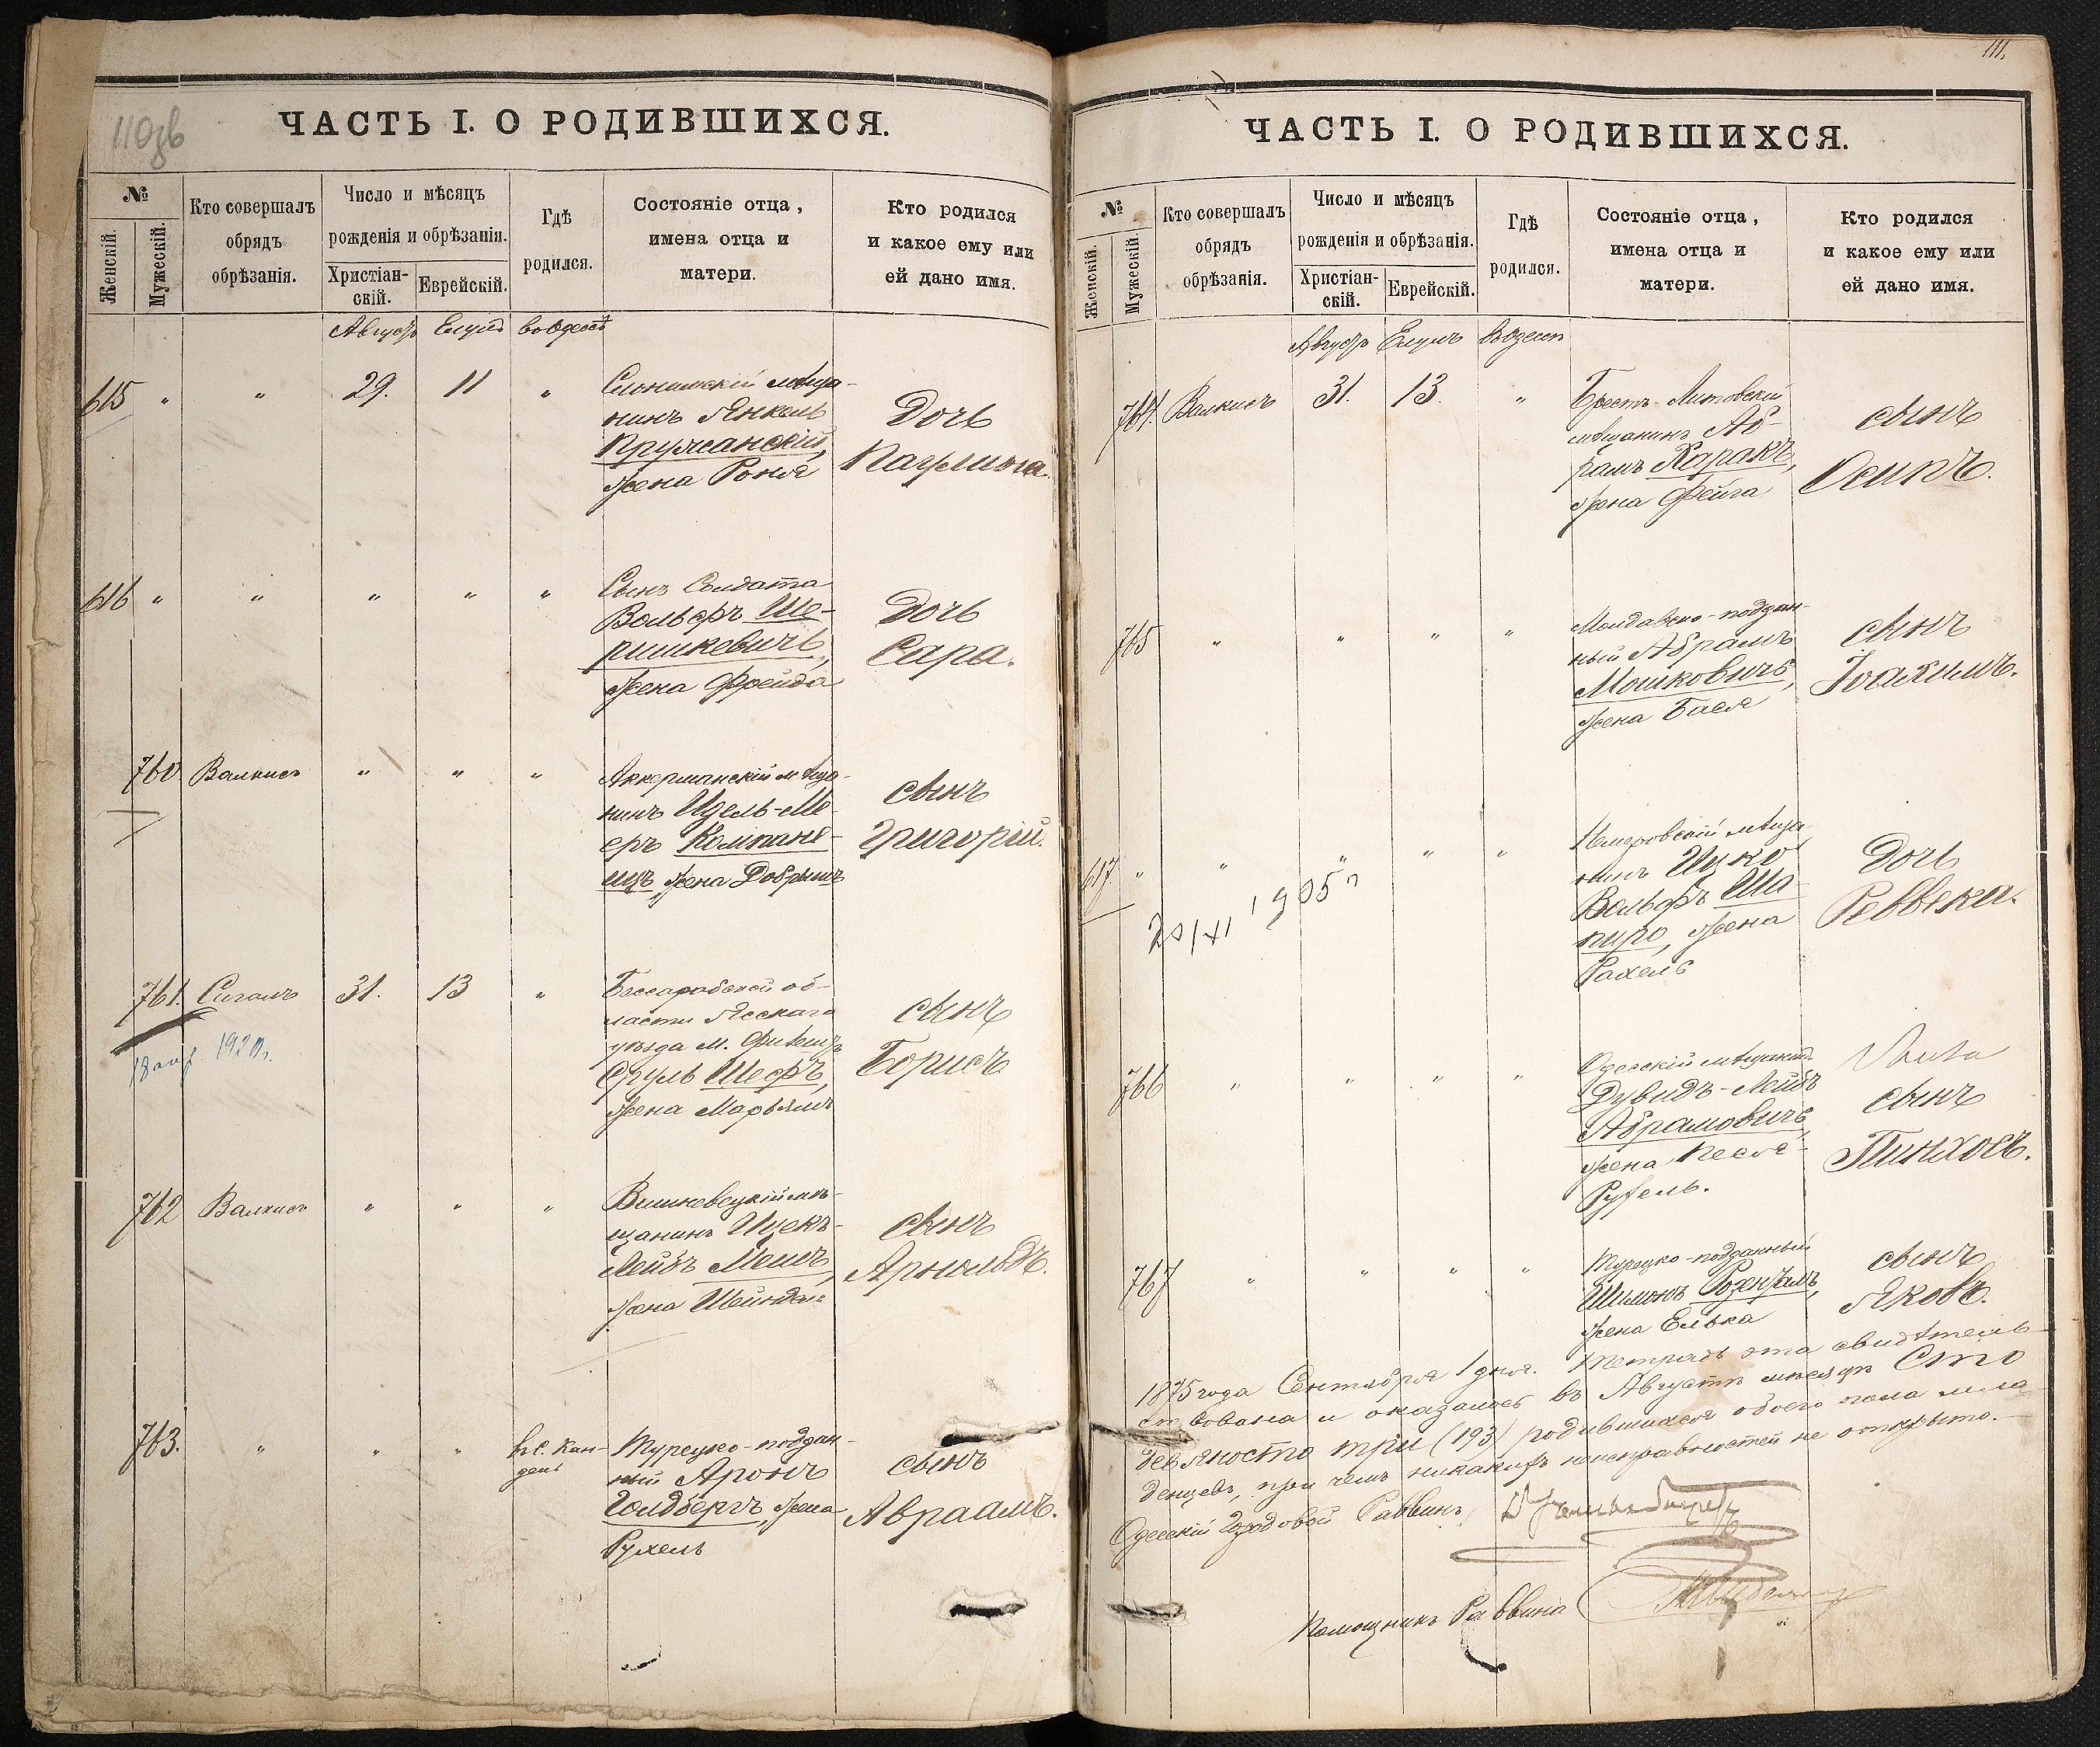 110зв
ЧАСТЬ I. О РОДИВШИХСЯ.
№
Женскій.
Мужескій.
Кто совершалъ
обрядъ
обрѣзанія.
Число и мѣсяцъ
рожденія и обрѣзанія.
Христіан-
скій.
Еврейскій.
Гдѣ
родился.
Состояніе отца,
имена отца и
матери.
Кто родился
и какое ему или
ей дано имя.
Августъ Елулъ въ Одессѣ
615 " " 29. 11 "
Слонимскій мѣща-
нинъ Янкель
Пружанскій,
жена Роня
Дочь
Паулина.
616 " " " " "
Сынъ Солдата
Вольфъ Ше-
ришкевичъ,
жена Фрейда
Дочь
Сара.
760 Валкисъ " " "
Аккерманскій мѣща-
нинъ Идель-Ме-
еръ Компане-
ицъ, жена Добрышъ
сынъ
Григорій.
761. Сигалъ 31. 13 "
18 апр. 1920г.
Бессарабской об-
ласти Ясскаго
уѣзда м. Фалешъ
Сруль Шефъ,
жена Марьямъ
сынъ
Борисъ
762 Валкисъ " " "
Вишневецкій мѣ-
щанинъ Ицекъ-
Лейбъ Мешъ,
жена Шейндля
сынъ
Арнольдъ.
763. " " "
Турецко-поддан-
ный Аронъ
Голдбергъ, жена
Рухель
сынъ
Авраамъ.
111.
ЧАСТЬ I. О РОДИВШИХСЯ.
№
Женскій.
Мужескій.
Кто совершалъ
обрядъ
обрѣзанія.
Число и мѣсяцъ
рожденія и обрѣзанія.
Христіан-
скій.
Еврейскій.
Гдѣ
родился.
Состояніе отца,
имена отца и
матери.
Кто родился
и какое ему или
ей дано имя.
Августъ Елулъ въ Одессѣ
764. Валкисъ 31. 13. "
Брестъ-Литовскій
мѣщанинъ Аб-
рамъ Каракъ,
жена Фейга
сынъ
Осипъ.
765 " " " "
Молдавско-поддан-
ный Абрамъ
Мошковичъ,
жена Бася
сынъ
Іоахимъ.
617. " " " " "
20/XI 1905 г
Немировскій мѣща-
нинъ Ицко
Вольфъ Ша-
пиро, жена
Рахель
Дочь
Реввека.
766 " " " "
Одесскій мѣщанинъ
Дувидъ-Лейбъ
Абрамовичъ,
жена Песя-
Рухель.
сынъ
Пинхосъ.
767 " " " "
Турецко-подданный
Шимонъ Розенталъ,
жена Елька
сынъ
Яковъ.
1875 года Сентября 1 дня. Тетрадь эта свидѣтель-
ствована и оказалось въ Августѣ мѣсяцѣ Сто
девяносто три (193) родившихся обоего пола мла
денцевъ, при чемъ никакихъ неисправностей не открыто.
Одесскій Городовой Раввинъ
Помощникъ Раввина